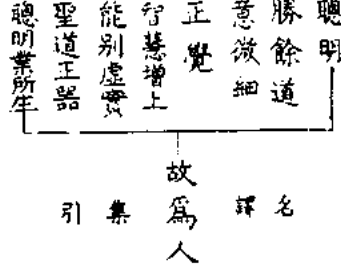 聰明
勝餘道
意微細
正覺
智慧增上
能別虛實
聖道正器
聰明業所生
故為人
譯名
集
引